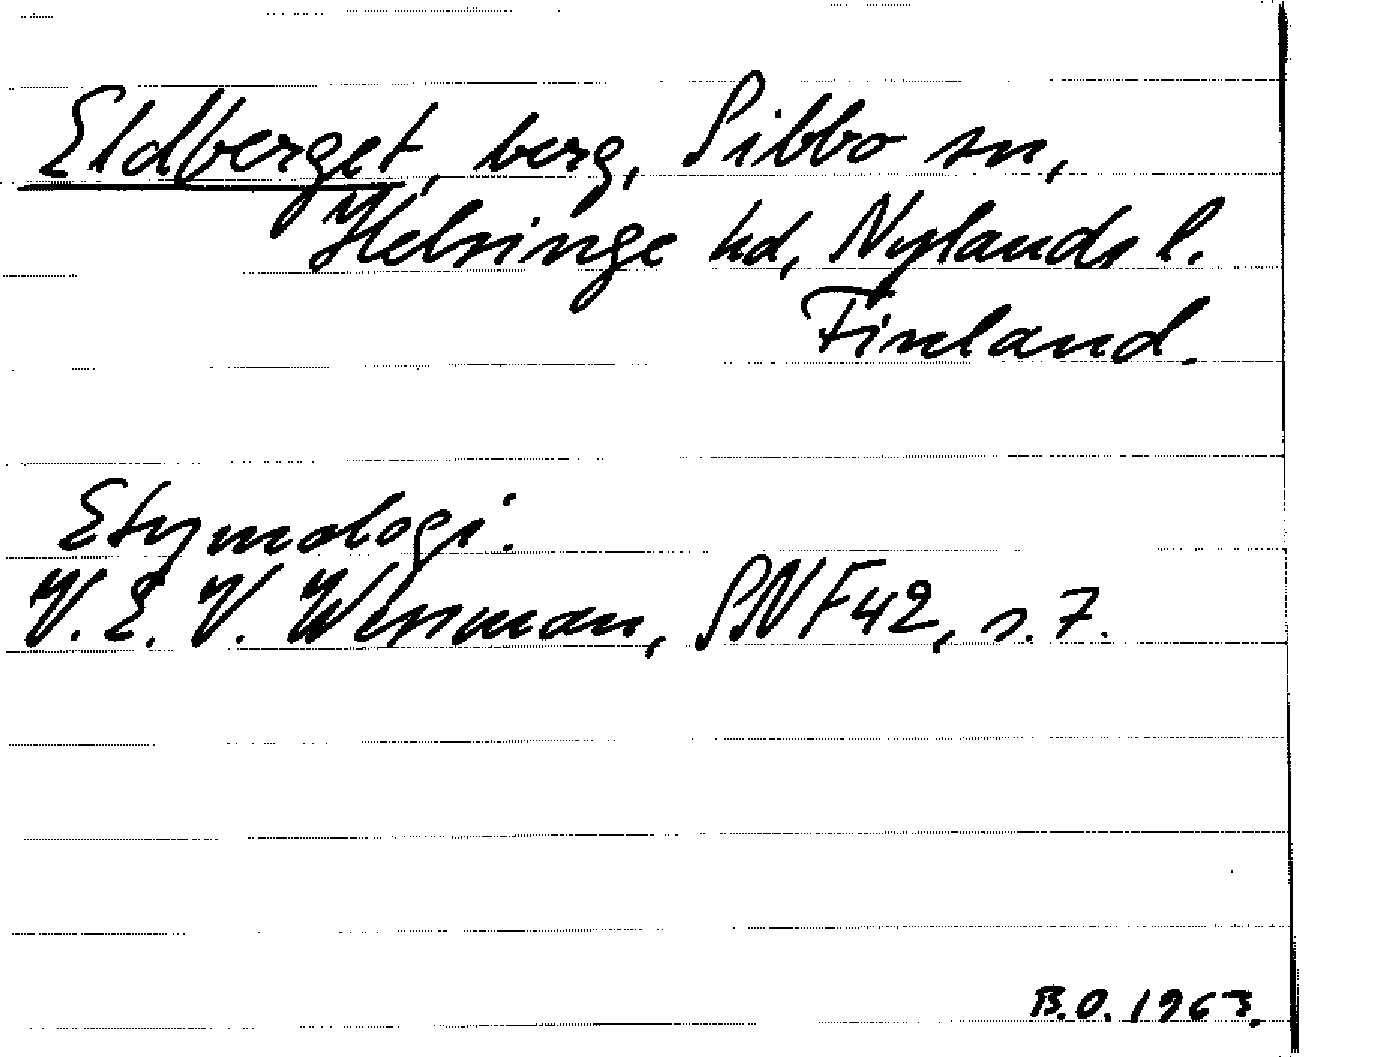 Eldberget, berg, Sibbo sn,
Helsinge hd, Nylands l.
Finland.
Etymologi.
V. E. V. Wessman, SNF 42, s. 7.
B.O. 1963.